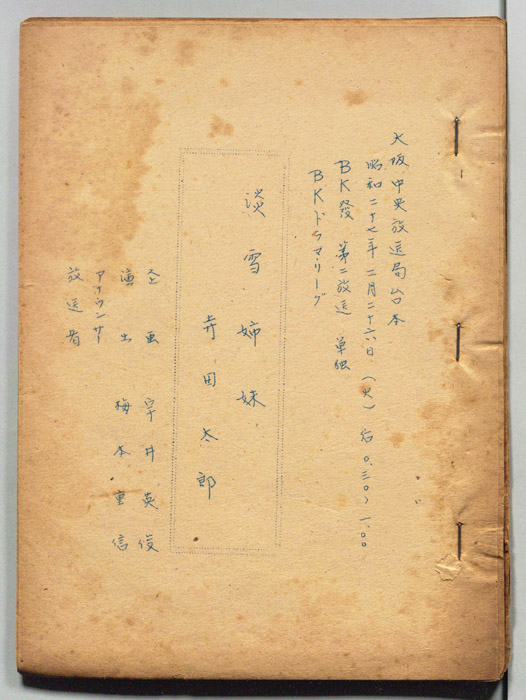 大阪中央放送局台本
昭和二十七年二月二十六日(火)后0.三〇〜一.〇〇
BK發 第二放送 単独
BKドラマリーグ
淡雪姉妹
寺田太郎
企画 宇井英俊
演出 梅本重信
アナウンサー
放送者